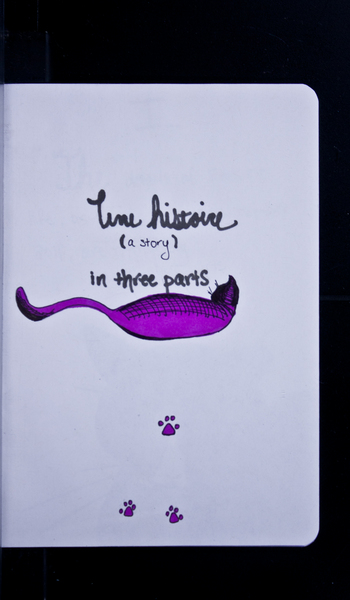 Une histoire
(a story)
in three parts